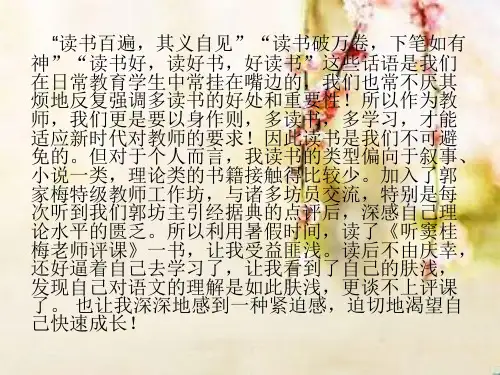 “读书百遍，其义自见”“读书破万卷，下笔如有
神”“读书好，读好书，好读书”这些话语是我们
在日常教育学生中常挂在嘴边的，我们也常不厌其
烦地反复强调多读书的好处和重要性！所以作为教
师，我们更是要以身作则，多读书，多学习，才能
适应新时代对教师的要求！因此读书是我们不可避
免的。但对于个人而言，我读书的类型偏向于叙事、
小说一类，理论类的书籍接触得比较少。加入了郭
家梅特级教师工作坊，与诸多坊员交流，特别是每
次听到我们郭坊主引经据典的点评后，深感自己理
论水平的匮乏。所以利用暑假时间，读了《听窦桂
梅老师评课》一书，让我受益匪浅。读后不由庆幸，
还好逼着自己去学习了，让我看到了自己的肤浅，
发现自己对语文的理解是如此肤浅，更谈不上评课
了。 也让我深深地感到一种紧迫感，迫切地渴望自
己快速成长！